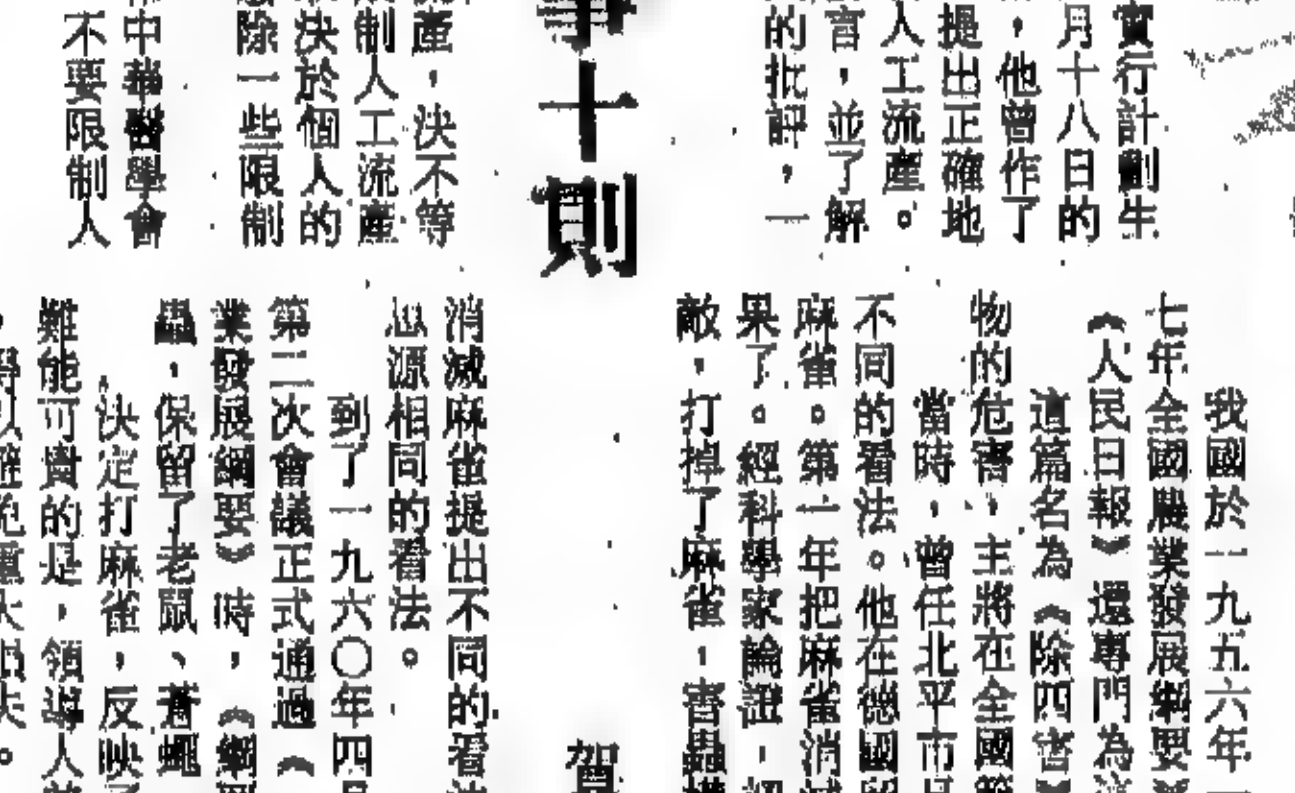 實行計劃生
月十八日的
，他曾作了
提出正確地
人工流產。
言，並了解
的批評，一
十則
產，決不等
制人工流產
決於個人的
除一些限制
中華醫學會
不要限制人
我國於一九五六年
七年全國農業發展綱要
《人民日報》還專門為
這篇名為《除四害
物的危害，主將在全國
當時，曾任北平市
不同的看法。他在德國
麻雀。第一年把麻雀消
果了。經科學家論證，
敵，打掉了麻雀，害蟲
賀
消滅麻雀提出不同的看
源相同的看法。
到了一九六〇年四
第二次會議正式通過《
業發展綱要》時，《綱
蟲，保留了老鼠、蒼蠅
決定打麻雀，反映
難能可貴的是，領導人